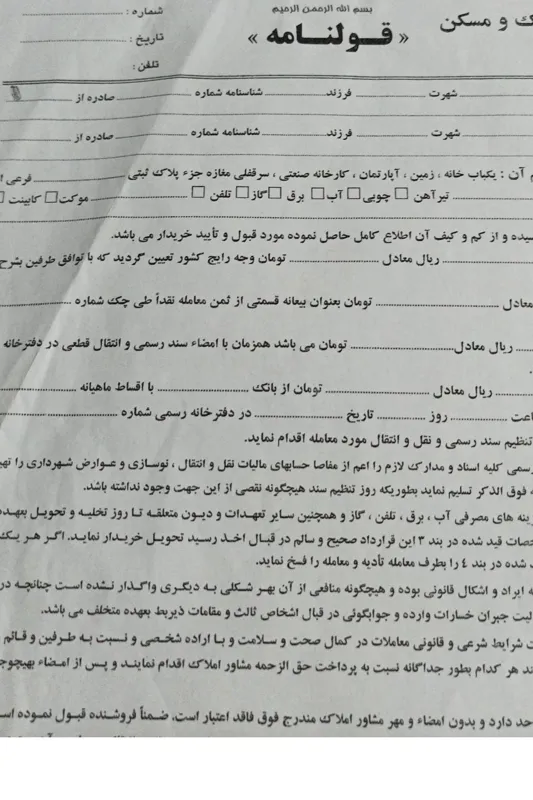 بسم الله الرحمن الرحیم
ک و مسکن
« قـولنـامه »
شماره :
تاریخ :
تلفن :
شهرت فرزند شناسنامه شماره صادره از
شهرت فرزند شناسنامه شماره صادره از
م آن : یکباب خانه ، زمین ، آپارتمان ، کارخانه صنعتی ، سرقفلی مغازه جزء پلاک ثبتی فرعی
تیرآهن □ چوبی □ آب □ برق □ گاز □ تلفن □ موکت □ کابینت □
سیده و از کم و کیف آن اطلاع کامل حاصل نموده مورد قبول و تأیید خریدار می باشد.
ریال معادل تومان وجه رایج کشور تعیین گردید که با توافق طرفین بشرح
معادل تومان بعنوان بیعانه قسمتی از ثمن معامله نقداً طی چک شماره
ریال معادل تومان می باشد همزمان با امضاء سند رسمی و انتقال قطعی در دفترخانه
ریال معادل تومان از بانک با اقساط ماهیانه
اعت روز تاریخ در دفترخانه رسمی شماره
تنظیم سند رسمی و نقل و انتقال مورد معامله اقدام نماید.
رسمی کلیه اسناد و مدارک لازم را اعم از مفاصا حسابهای مالیات نقل و انتقال ، نوسازی و عوارض شهرداری را تهی
ه فوق الذکر تسلیم نماید بطوریکه روز تنظیم سند هیچگونه نقصی از این جهت وجود نداشته باشد.
زینه های مصرفی آب ، برق ، تلفن ، گاز و همچنین سایر تعهدات و دیون متعلقه تا روز تخلیه و تحویل بعهده
خصات قید شده در بند ۳ این قرارداد صحیح و سالم در قبال اخذ رسید تحویل خریدار نماید. اگر هر یک
شده در بند ٤ را بطرف معامله تأدیه و معامله را فسخ نماید.
ه ایراد و اشکال قانونی بوده و هیچگونه منافعی از آن بهر شکلی به دیگری واگذار نشده است چنانچه در
لیت جبران خسارات وارده و جوابگوئی در قبال اشخاص ثالث و مقامات ذیربط بعهده متخلف می باشد.
ت شرایط شرعی و قانونی معاملات در کمال صحت و سلامت و با اراده شخصی و نسبت به طرفین و قائم
ند هر کدام بطور جداگانه نسبت به پرداخت حق الزحمه مشاور املاک اقدام نمایند و پس از امضاء بهیچوجه
حد دارد و بدون امضاء و مهر مشاور املاک مندرج فوق فاقد اعتبار است. ضمناً فروشنده قبول نموده اس